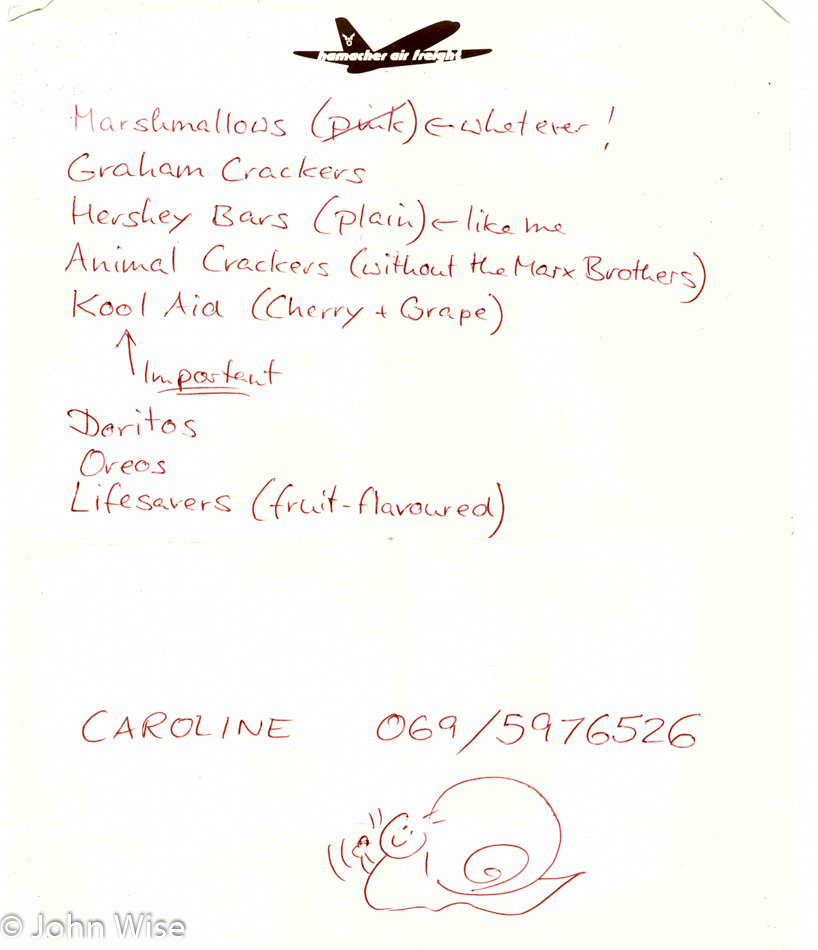 hamacher air freight
Marshmallows (pink) ← whatever!
Graham Crackers
Hershey Bars (plain) ← like me
Animal Crackers (without the Marx Brothers)
Kool Aid (Cherry + Grape)
↑ Important
Doritos
Oreos
Lifesavers (fruit-flavoured)
CAROLINE 069/5976526
© John Wise